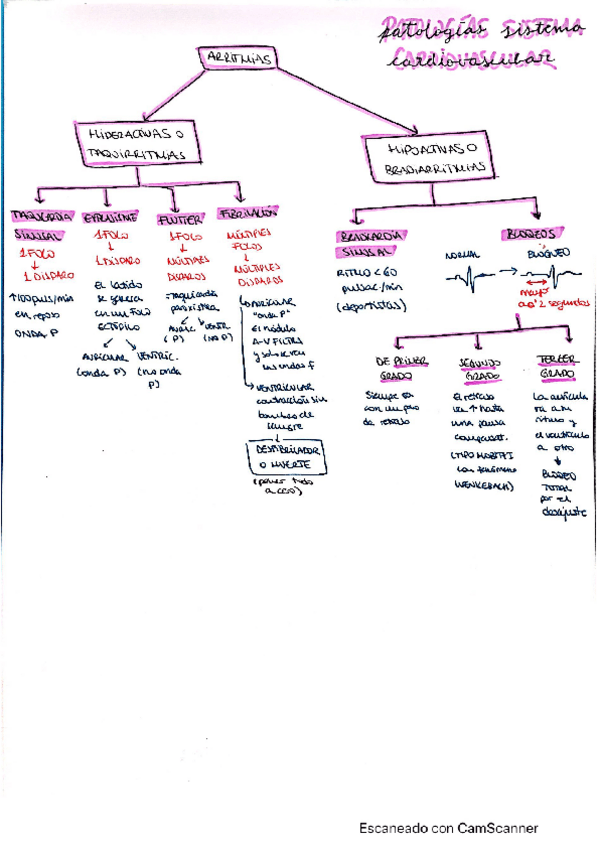 patologías sistema
cardiovascular
ARRITMIAS
HIPERACTIVAS O
TAQUIRRITMIAS
HIPOACTIVAS O
BRADIARRITMIAS
TAQUICARDIA
SINUSAL
1 FOCO
1 DISPARO
↑100 puls/min
en reposo
ONDA P
1 FOCO
1 DISPARO
El latido
se genera
en un FOCO
ECTÓPICO
AURICULAR
(onda P)
VENTRIC.
(no onda
P)
FLUTTER
1 FOCO
MÚLTIPLES
DISPAROS
= taquicardia
paroxística
AURIC.
( P)
VENTR
(NO P)
FIBRILACIÓN
MÚLTIPLES
FOCOS
MÚLTIPLES
DISPAROS
AURICULAR
"onda P"
El nódulo
A-V FILTRA
y solo se ven
las ondas f
VENTRICULAR
contracción sin
bombeo de
sangre
DESFIBRILADOR
O MUERTE
(poner todo
a cero)
BRADICARDIA
SINUSAL
RITMO < 60
pulsac/min
(deportistas)
BLOQEOS
NORMAL
BLOQUEO
mayor
a 0'2 segundos
DE PRIMER
GRADO
Siempre es
con un poco
de retraso
SEGUNDO
GRADO
El retraso
va ↑ hasta
una pausa
compensat.
(TIPO MOBITZ I
con fenómeno
WENCKEBACH)
TERCER
GRADO
La aurícula
va a un
ritmo y
el ventrículo
a otro
BLOQEO
TOTAL
por el
desajuste
Escaneado con CamScanner